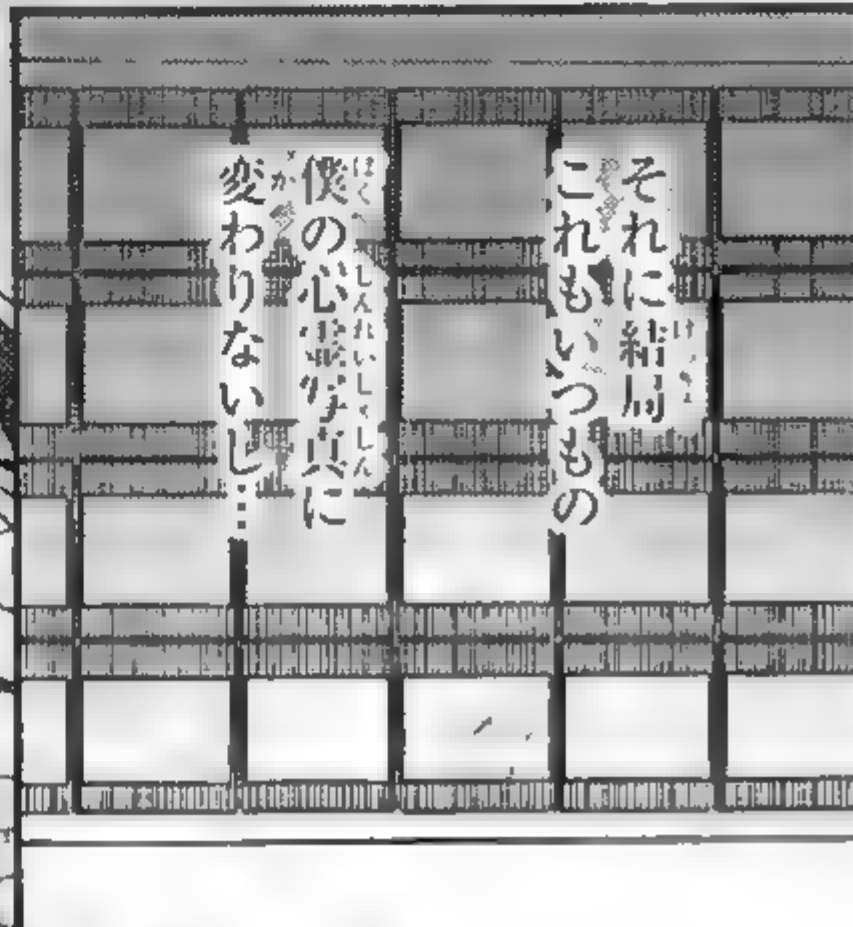 それに結局
これもいつもの
僕の心霊写真に
変わりないし…